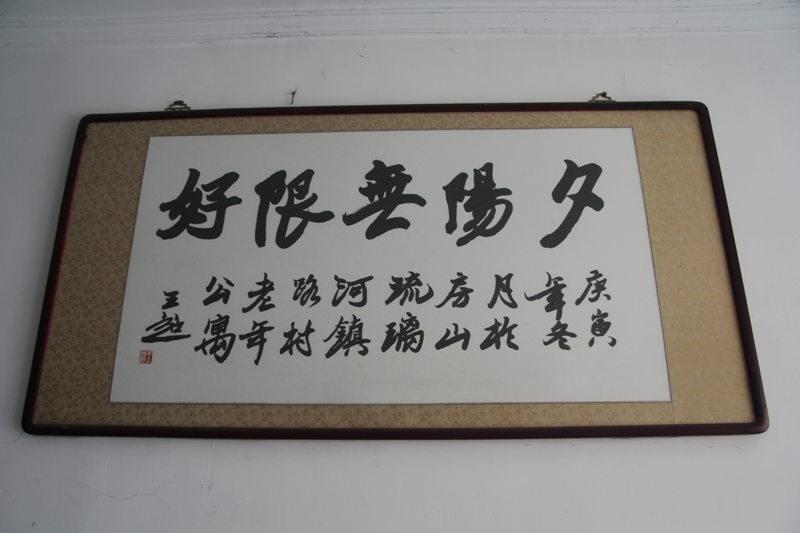 夕陽無限好
庚寅
年冬
月於
房山
琉璃
河鎮
路村
老年
公寓
王超